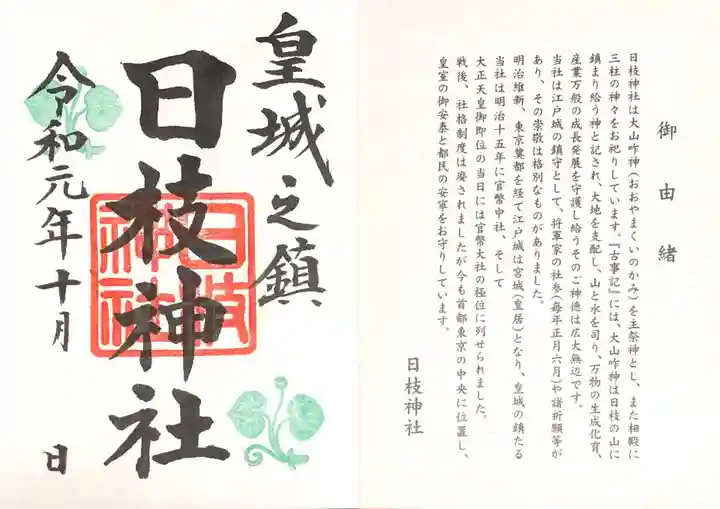 皇城之鎮
日枝神社
日枝神社
令和元年十月
日
御由緒
日枝神社は大山咋神(おおやまくいのかみ)を主祭神とし、また相殿に
三柱の神々をお祀りしています。『古事記』には、大山咋神は日枝の山に
鎮まり給う神と記され、大地を支配し、山と水を司り、万物の生成化育、
産業万般の成長発展を守護し給うそのご神徳は広大無辺です。
当社は江戸城の鎮守として、将軍家の社参(毎年正月六月)や諸祈願等が
あり、その崇敬は格別なものがありました。
明治維新、東京奠都を経て江戸城は宮城(皇居)となり、皇城の鎮たる
当社は明治十五年に官幣中社、そして
大正天皇御即位の当日には官幣大社の極位に列せられました。
戦後、社格制度は廃されましたが今も首都東京の中央に位置し、
皇室の御安泰と都民の安寧をお守りしています。
日枝神社